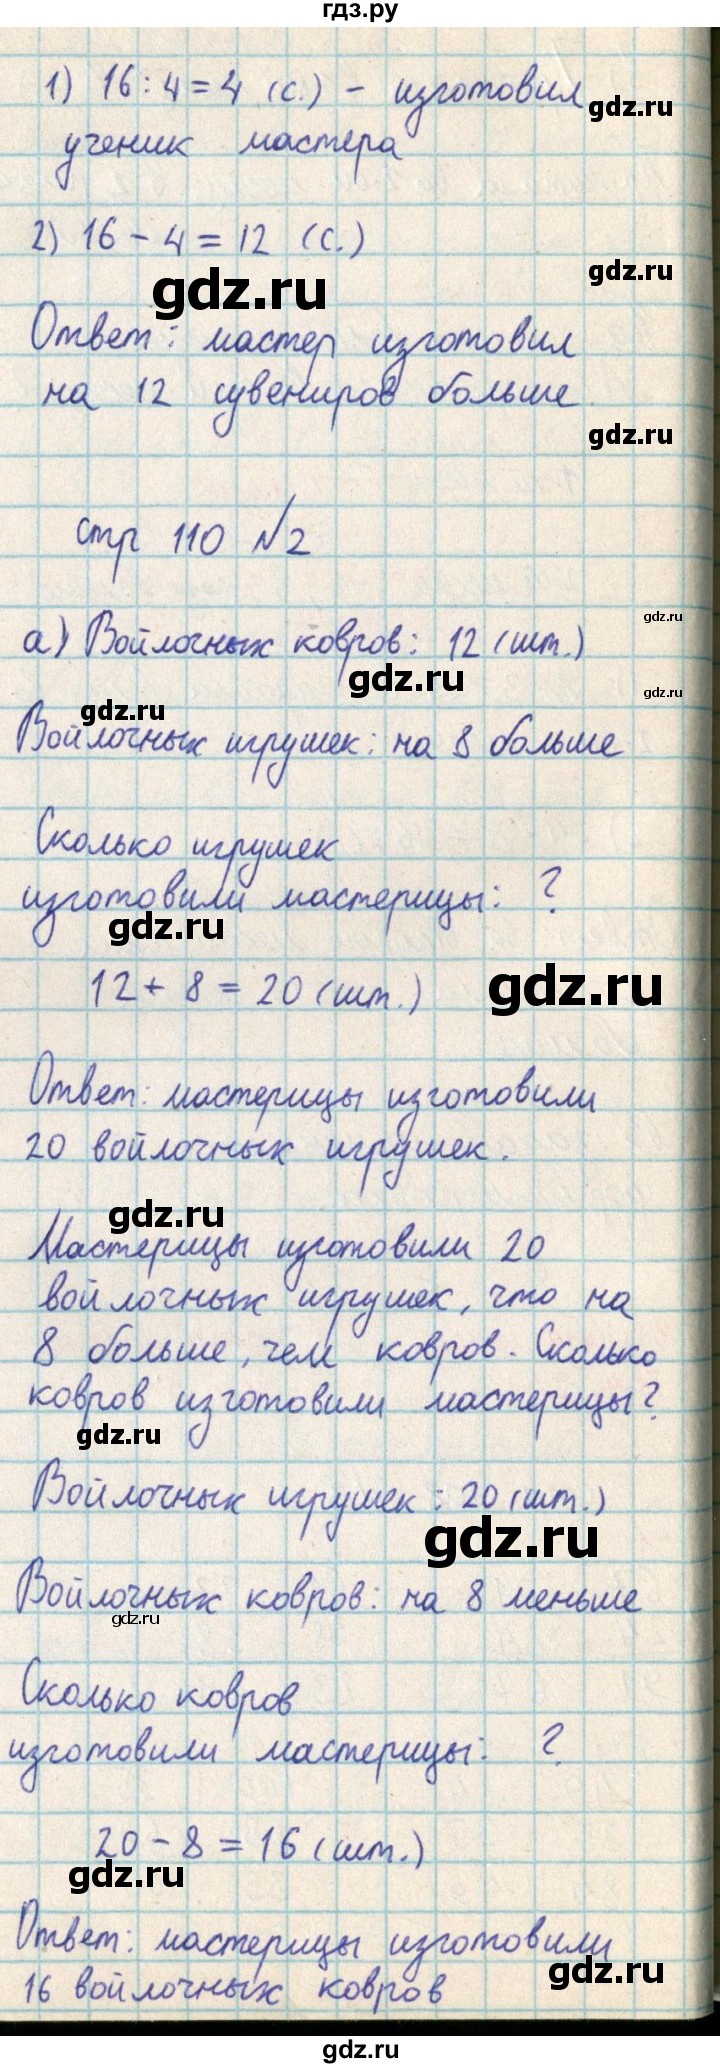 гдз.ру
1) 16:4=4 (с.) - изготовил
gdz.ru
ученик мастера
2) 16-4=12 (с.)
gdz.ru
gdz.ru
Ответ: мастер изготовил
на 12 сувениров больше.
gdz.ru
стр 110 №2
gdz.ru
а) Войлочных ковров: 12 (шт.)
gdz.ru
gdz.ru
gdz.ru
Войлочных игрушек: на 8 больше
Сколько игрушек
изготовили мастерицы: ?
gdz.ru
12+8=20 (шт.)
gdz.ru
Ответ: мастерицы изготовили
20 войлочных игрушек.
gdz.ru
Мастерицы изготовили 20
войлочных игрушек, что на
8 больше, чем ковров. Сколько
ковров изготовили мастерицы?
gdz.ru
Войлочных игрушек: 20 (шт.)
gdz.ru
Войлочных ковров: на 8 меньше
gdz.ru
Сколько ковров
изготовили мастерицы: ?
20-8=16 (шт.)
gdz.ru
Ответ: мастерицы изготовили
gdz.ru
16 войлочных ковров
gdz.ru